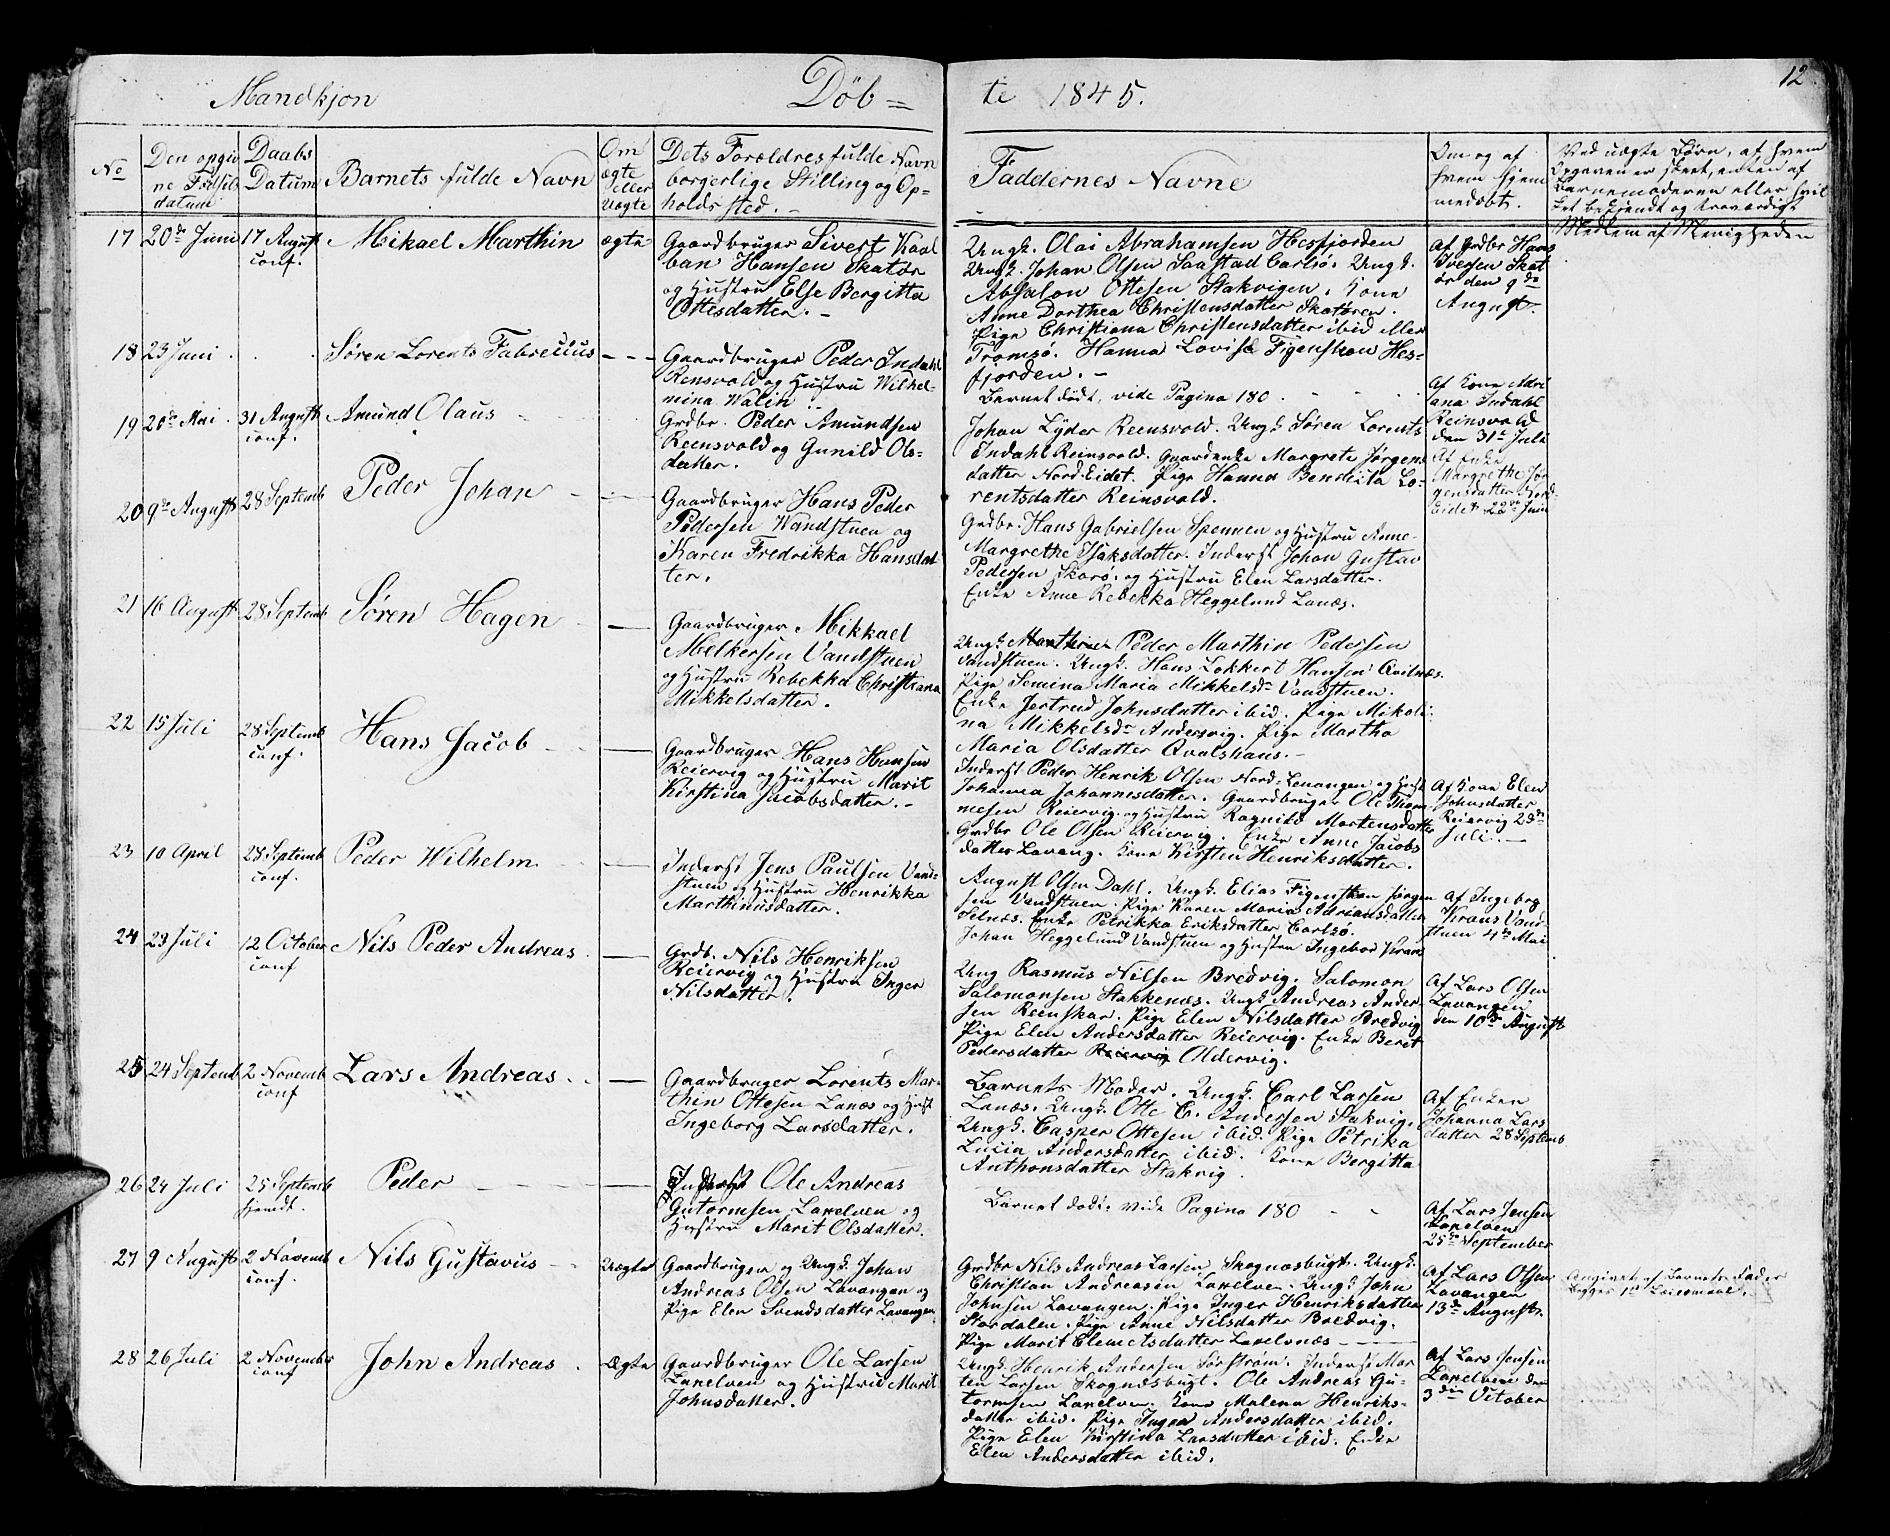 12
Mandkjøn Døb=te 1845.
No
Den opgivne Fødselsdatum
Daabs Datum
Barnets fulde Navn
Om ægte eller Uægte
Dets Forældres fulde Navn
borgerlige Stilling og Op=
holdssted.
Faddernes Navne
Om og af
hvem hjem
medøbt.
Ved uægte Børn, af hvem
Opgaven er skeet, enten af
Barnemoderen eller hvil
ket bekjendt og troværdigt
Medlem af Menigheden
17 20de Juni 17 August conf. Mikael Marthin ægte
Gaardbruger Sivert Kaal
ban Hansen Skatør
og Hustru Else Bergitta
Ottesdatter.
Ungk. Olai Abrahamsen Hesfjorden
Ungk. Johan Olsen Saastad Carlsø. Ungk.
Absalon Ottesen Stakvigen. Kone
Anne Dorthea Christensdatter Skatøren.
Pige Christiana Christensdatter ibid eller
Tromsø. Hanna Lovise Figenskou Hes=
fjorden.
Af Grdbr Hans
Iversen Skat
ør den 9de
August.
18 23 Juni Søren Lorents Fabrecius
Gaardbruger Peder Indahl
Rensvold og Hustru Wilhel=
mina Walin
Barnet dødt, vide Pagina 180.
Af Kone Adri
ana Indahl
Reinsvold
den 31te Juli
19 20de Mai 31 August conf. Amund Olaus
Grdbr. Peder Amundsen
Reensvold og Gunild Ols=
datter.
Johan Lyder Reensvold. Ungk Søren Lorents
Indahl Reinsvold. Gaardenke Margrete Jørgens
datter Nord-Eidet. Pige Hanna Bendicta Lo=
rentsdatter Reinsvold.
Af Enke
Margrethe Jør
gensdatter Nord-
Eidet 22de Juni
20 9de August 28 Septemb Peder Johan
Gaardbruger Hans Peder
Pedersen Wandstuen og
Karen Fredrikka Hansdat
ter.
Grdbr. Hans Gabrielsen Spennen og Hustru Anne
Margrethe Isaksdatter. Inderst Johan Gustav
Pedersen Skorø. og Hustru Elen Larsdatter.
Enke Anne Rebekka Heggelund Lanæs.
21 16 August 28 Septemb Søren Hagen
Gaardbruger Mikkael
Melkersen Vandstuen
og Hustru Rebekka Christiana
Mikkelsdatter.
Ungk. Peder Marthin Pedersen
Vandstuen. Ungk. Hans Lokkert Hansen Qvitnæs.
Pige Semina Maria Mikkelsdr Vandstuen.
Enke Jertrud Johnsdatter ibid. Pige Mikoli=
na Mikkelsdr Andersvig. Pige Martha
Maria Olsdatter Qvalshaus.
22 15 Juli 28 Septemb conf. Hans Jacob
Gaardbruger Hans Hansen
Reiervig og Hustru Marit
Kirstina Jacobsdatter.
Inderst Peder Henrik Olsen Nord-Lenangen og Hust
Johanna Johannesdatter. Gaardbruger Ole Thom
mesen Reiervig. og Hustru Ragnild Mortensdatter
Grdbr Ole Olsen Reiervig. Enke Anne Jacobs
datter Lavang. Kone Kirsten Henriksdatter.
Af Kone Elen
Johnsdatter
Reiervig 23de
Juli.
23 10 April 28 Septemb conf. Peder Wilhelm
Inderst Jens Paulsen Vand=
stuen og Hustru Henrikka
Marthinusdatter.
August Olsen Dahl. Ungk. Elias Figenskou Jørgen
sen Vandstuen. Pige Karen Maria Adriansdatter
Selnæs. Enke Petrikka Eriksdatter Carlsø.
Johan Heggelund Vandstuen og Hustru Ingebor Krans
Af Ingebrg
Krans Vand=
stuen 4de Mai
24 23 Juli 12 October conf Nils Peder Andreas
Grdb. Nils Henriksen
Reiervig og Hustru Inger
Nilsdatter.
Ung Rasmus Nilsen Bredvig. Salomon
Salomonsen Stakkenæs. Ungk Andreas Ander
sen Reinskar. Pige Elen Nilsdatter Bredvig
Pige Elen Andersdatter Reiervig. Enke Beret
Pedersdatter Reiervig Oldervig.
Af Lars Olsen
Lavangen
den 10de August
25 24 Septemb 2 Novemb conf Lars Andreas
Gaardbruger Lorents Mar=
thin Ottesen Lanæs og Hust
Ingeborg Larsdatter.
Barnets Moder. Ungk. Carl Larsen
Lanæs. Ungk. Otte C. Andersen Stakvig.
Ungk. Casper Ottesen ibid. Pige Petrika
Lucia Andersdatter ibid. Kone Bergitta
Anthonsdatter Stakvig.
Af Enken
Johanna Lars
datter 28 Septemb
26 24 Juli 25 Septemb hjemdt. Peder
Inderst Ole Andreas
Gutormsen Laxelven og
Hustru Marit Olsdatter.
Barnet dødt. vide Pagina 180
Af Lars Jensen
Laxelven
25de September
27 9 August 2 Novemb conf. Nils Gustavus Uægte
Gaardbruger og Ungk. Johan
Andreas Olsen Lavangen og
Pige Elen Svendsdatter Lavangen
Grdbr Nils Andreas Larsen Skognæsbugt. Ungk.
Christian Andreassen Laxelven. Ungk John
Johnsen Lavangen. Pige Inger Henriksdatter
Stordalen. Pige Anne Nilsdatter Bredvig.
Pige Marit Clemetsdatter Laxelvnæs
Af Lars Olsen
Lavangen
13de August.
Angivet af Barnets Fader
Begges 1te Leiermaal.
28 26 Juli 2 November conf John Andreas Ægte
Gaardbruger Ole Larsen
Laxelven og Hustru Marit
Johnsdatter.
Ungk. Henrik Andersen Sørstrøm. Inderst Mor
ten Larsen Skognæsbugt. Ole Andreas Gu=
tormsen Laxelven. Kone Malena Henriks=
datter ibid. Pige Inger Andersdatter ibid.
Pige Elen Kirstina Larsdatter ibid. Enke
Elen Andersdatter ibid.
Af Lars Jensen
Laxelven den
3die October